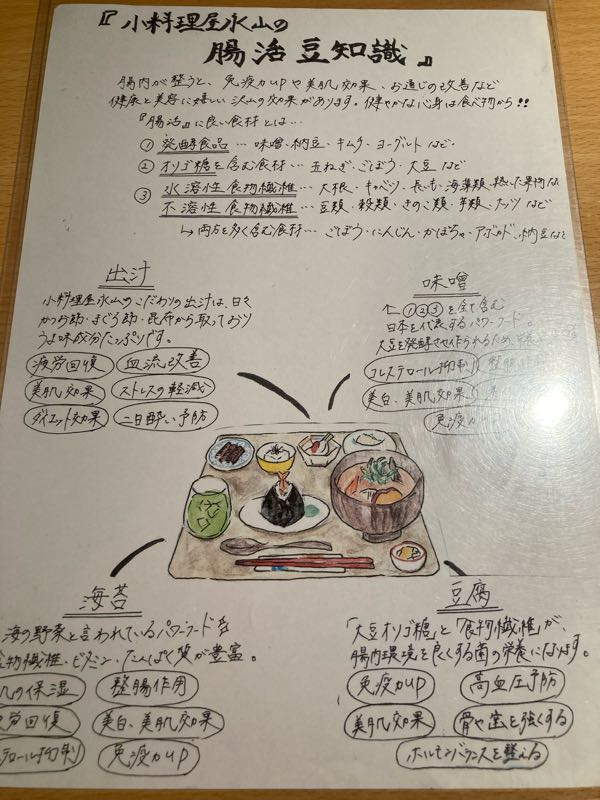 『小料理屋氷山の
腸活豆知識』
腸内が整うと、免疫力upや美肌効果、お通じの改善など
健康と美容に嬉しい沢山の効果があります。健やかな心身は食べ物から!!
『腸活』に良い食材とは…
① 発酵食品 … 味噌・納豆・キムチ・ヨーグルトなど
② オリゴ糖を含む食材 … 玉ねぎ・ごぼう・大豆 など
③ 水溶性食物繊維 … 大根・キャベツ・長いも・海藻類・熟した果物など
不溶性食物繊維 … 豆類・穀類・きのこ類・芋類・ナッツ など
↳ 両方を多く含む食材 … ごぼう・にんじん・かぼちゃ・アボカド・納豆など
出汁
小料理屋氷山のこだわりの出汁は、日々
かつお節・まぐろ節・昆布から取っており
うま味成分たっぷりです。
疲労回復 血流改善
美肌効果 ストレスの軽減
ダイエット効果 二日酔い予防
味噌
①②③を全て含む
日本を代表するパワーフード。
大豆を発酵させ作られるため
コレステロール抑制 整腸作用
美白、美肌効果
免疫力up
海苔
海の野菜と言われているパワーフード
食物繊維・ビタミン・たんぱく質が豊富。
の保湿 整腸作用
労回復 美白、美肌効果
テロール抑制 免疫力up
豆腐
「大豆オリゴ糖」と「食物繊維」が、
腸内環境を良くする菌の栄養になります。
免疫力up 高血圧予防
美肌効果 骨や歯を強くする
ホルモンバランスを整える